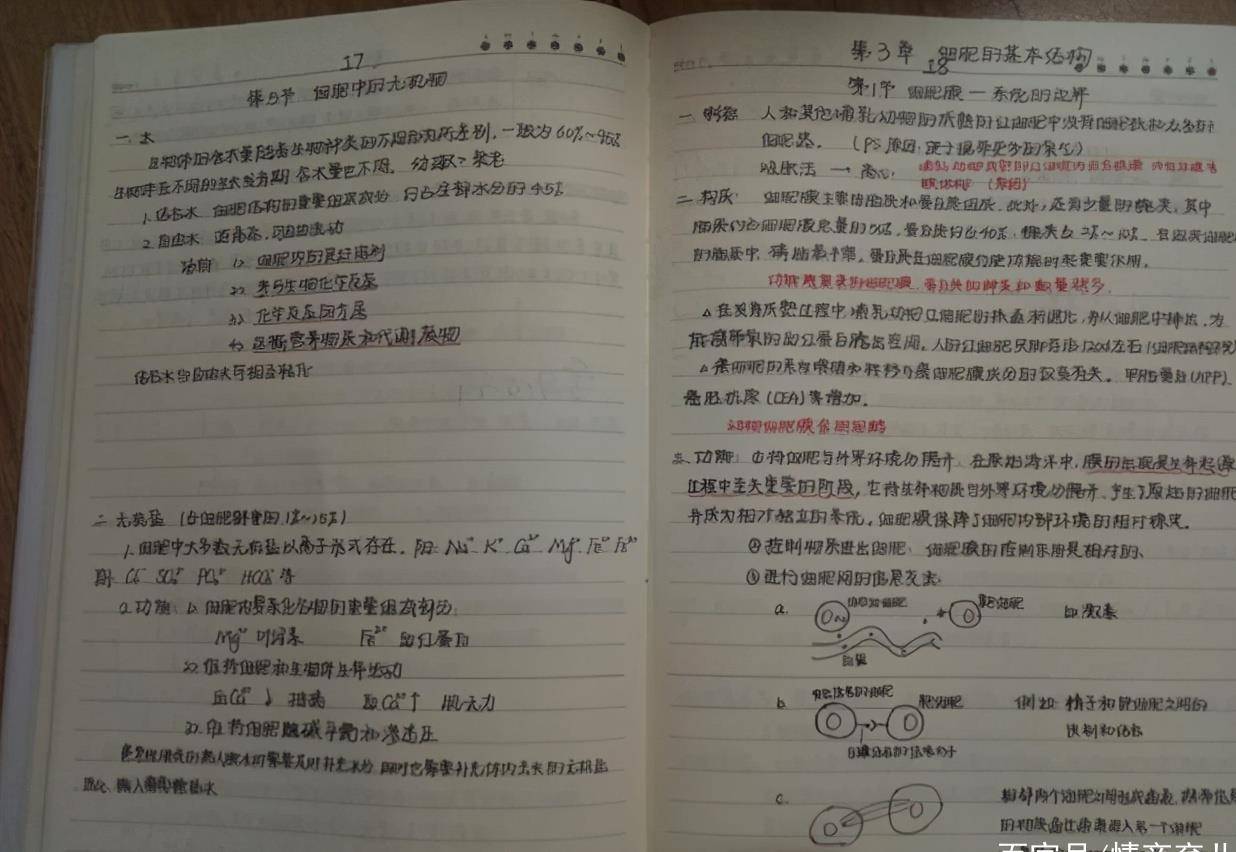 17
第5节 细胞中的无机物
一、水
生物体的含水量随着生物种类的不同有所差别,一般为60%~95%
生物体在不同的生长发育期,含水量也不同。幼年>衰老
1. 结合水 细胞结构的重要组成成分 约占全部水分的4.5%
2. 自由水 游离态,可自由流动
功能 (1) 细胞内的良好溶剂
(2) 参与生物化学反应
(3) 化学反应
(4) 运输营养物质和代谢废物
结合水与自由水可相互转化
二、无机盐(占细胞鲜重的1%~1.5%)
1. 细胞中大多数无机盐以离子形式存在。阳: Na⁺ K⁺ Ca²⁺ Mg²⁺ Fe²⁺ Fe³⁺
阴: Cl⁻ SO₄²⁻ PO₄³⁻ HCO₃⁻ 等
2. 功能: (1) 细胞内复杂化合物的重要组成部分:
Mg²⁺ 叶绿素 Fe²⁺ 血红蛋白
(2) 维持细胞和生物体生命活动
血Ca²⁺↓ 抽搐 血Ca²⁺↑ 肌无力
(3) 维持细胞酸碱平衡和渗透压
病人 需要及时补充水分 同时也需要补充体内丢失的无机盐
输入 盐水
第3章 细胞的基本结构
18
第1节 细胞膜—系统的边界
一、制备: 人和其他哺乳动物的成熟的红细胞中没有细胞核和众多的
细胞器。
吸胀法 → 离心:
二、物质: 细胞膜主要由脂质和蛋白质组成。此外,还有少量的糖类,其中
脂质约占细胞膜总量的50%,蛋白质约占40%,糖类占2%~10%。在组成细胞膜
的脂质中,磷脂最丰富。蛋白质在细胞膜行使功能时起重要作用。
功能越复杂的细胞膜,蛋白质的种类和数量越多。
△ 在发育成熟过程中,哺乳动物红细胞的核逐渐退化,并从细胞中排出,为
能携带氧的血红蛋白腾出空间。人的红细胞只能存活120天左右
△ 癌细胞的恶性增殖和转移与癌细胞膜成分的改变有关。甲胎蛋白(AFP)、
癌胚抗原(CEA)等增加。
三、功能: ①将细胞与外界环境分隔开 在原始海洋中,膜的出现是生命起源
过程中至关重要的阶段,它将生命物质与外界环境分隔开,产生了原始的细胞,
并成为相对独立的系统。细胞膜保障了细胞内部环境的相对稳定。
②控制物质进出细胞: 细胞膜的控制作用是相对的、
③进行细胞间的信息交流:
a. 内分泌细胞 靶细胞 如:激素
血管
b. 发出信号的细胞 靶细胞 例如:精子和卵细胞之间的
识别和结合
与膜结合的信号分子
c. 相邻两个细胞之间形成通道,携带信息
的物质通过通道进入另一个细胞
百家号/情商育儿